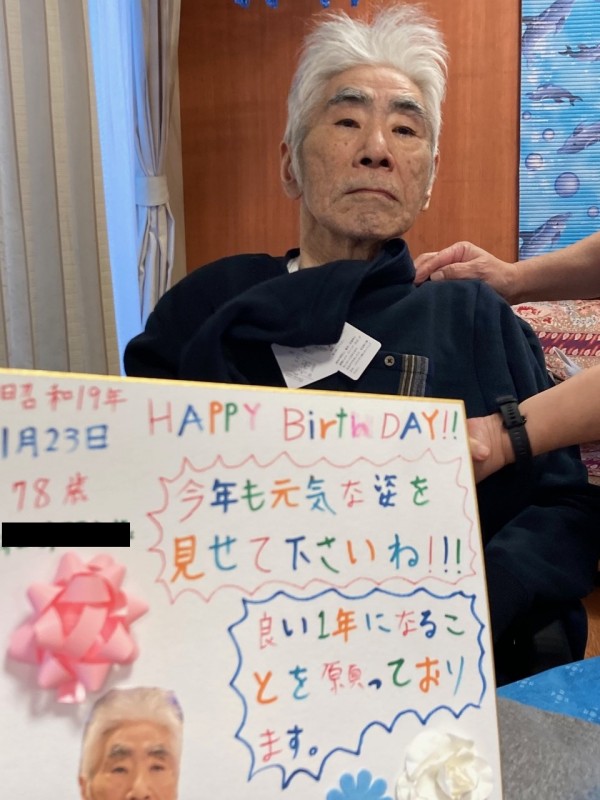 昭和19年
1月23日
78歳
HAPPY BirthDAY!!
今年も元気な姿を
見せて下さいね!!!
良い1年になるこ
とを願っており
ます。